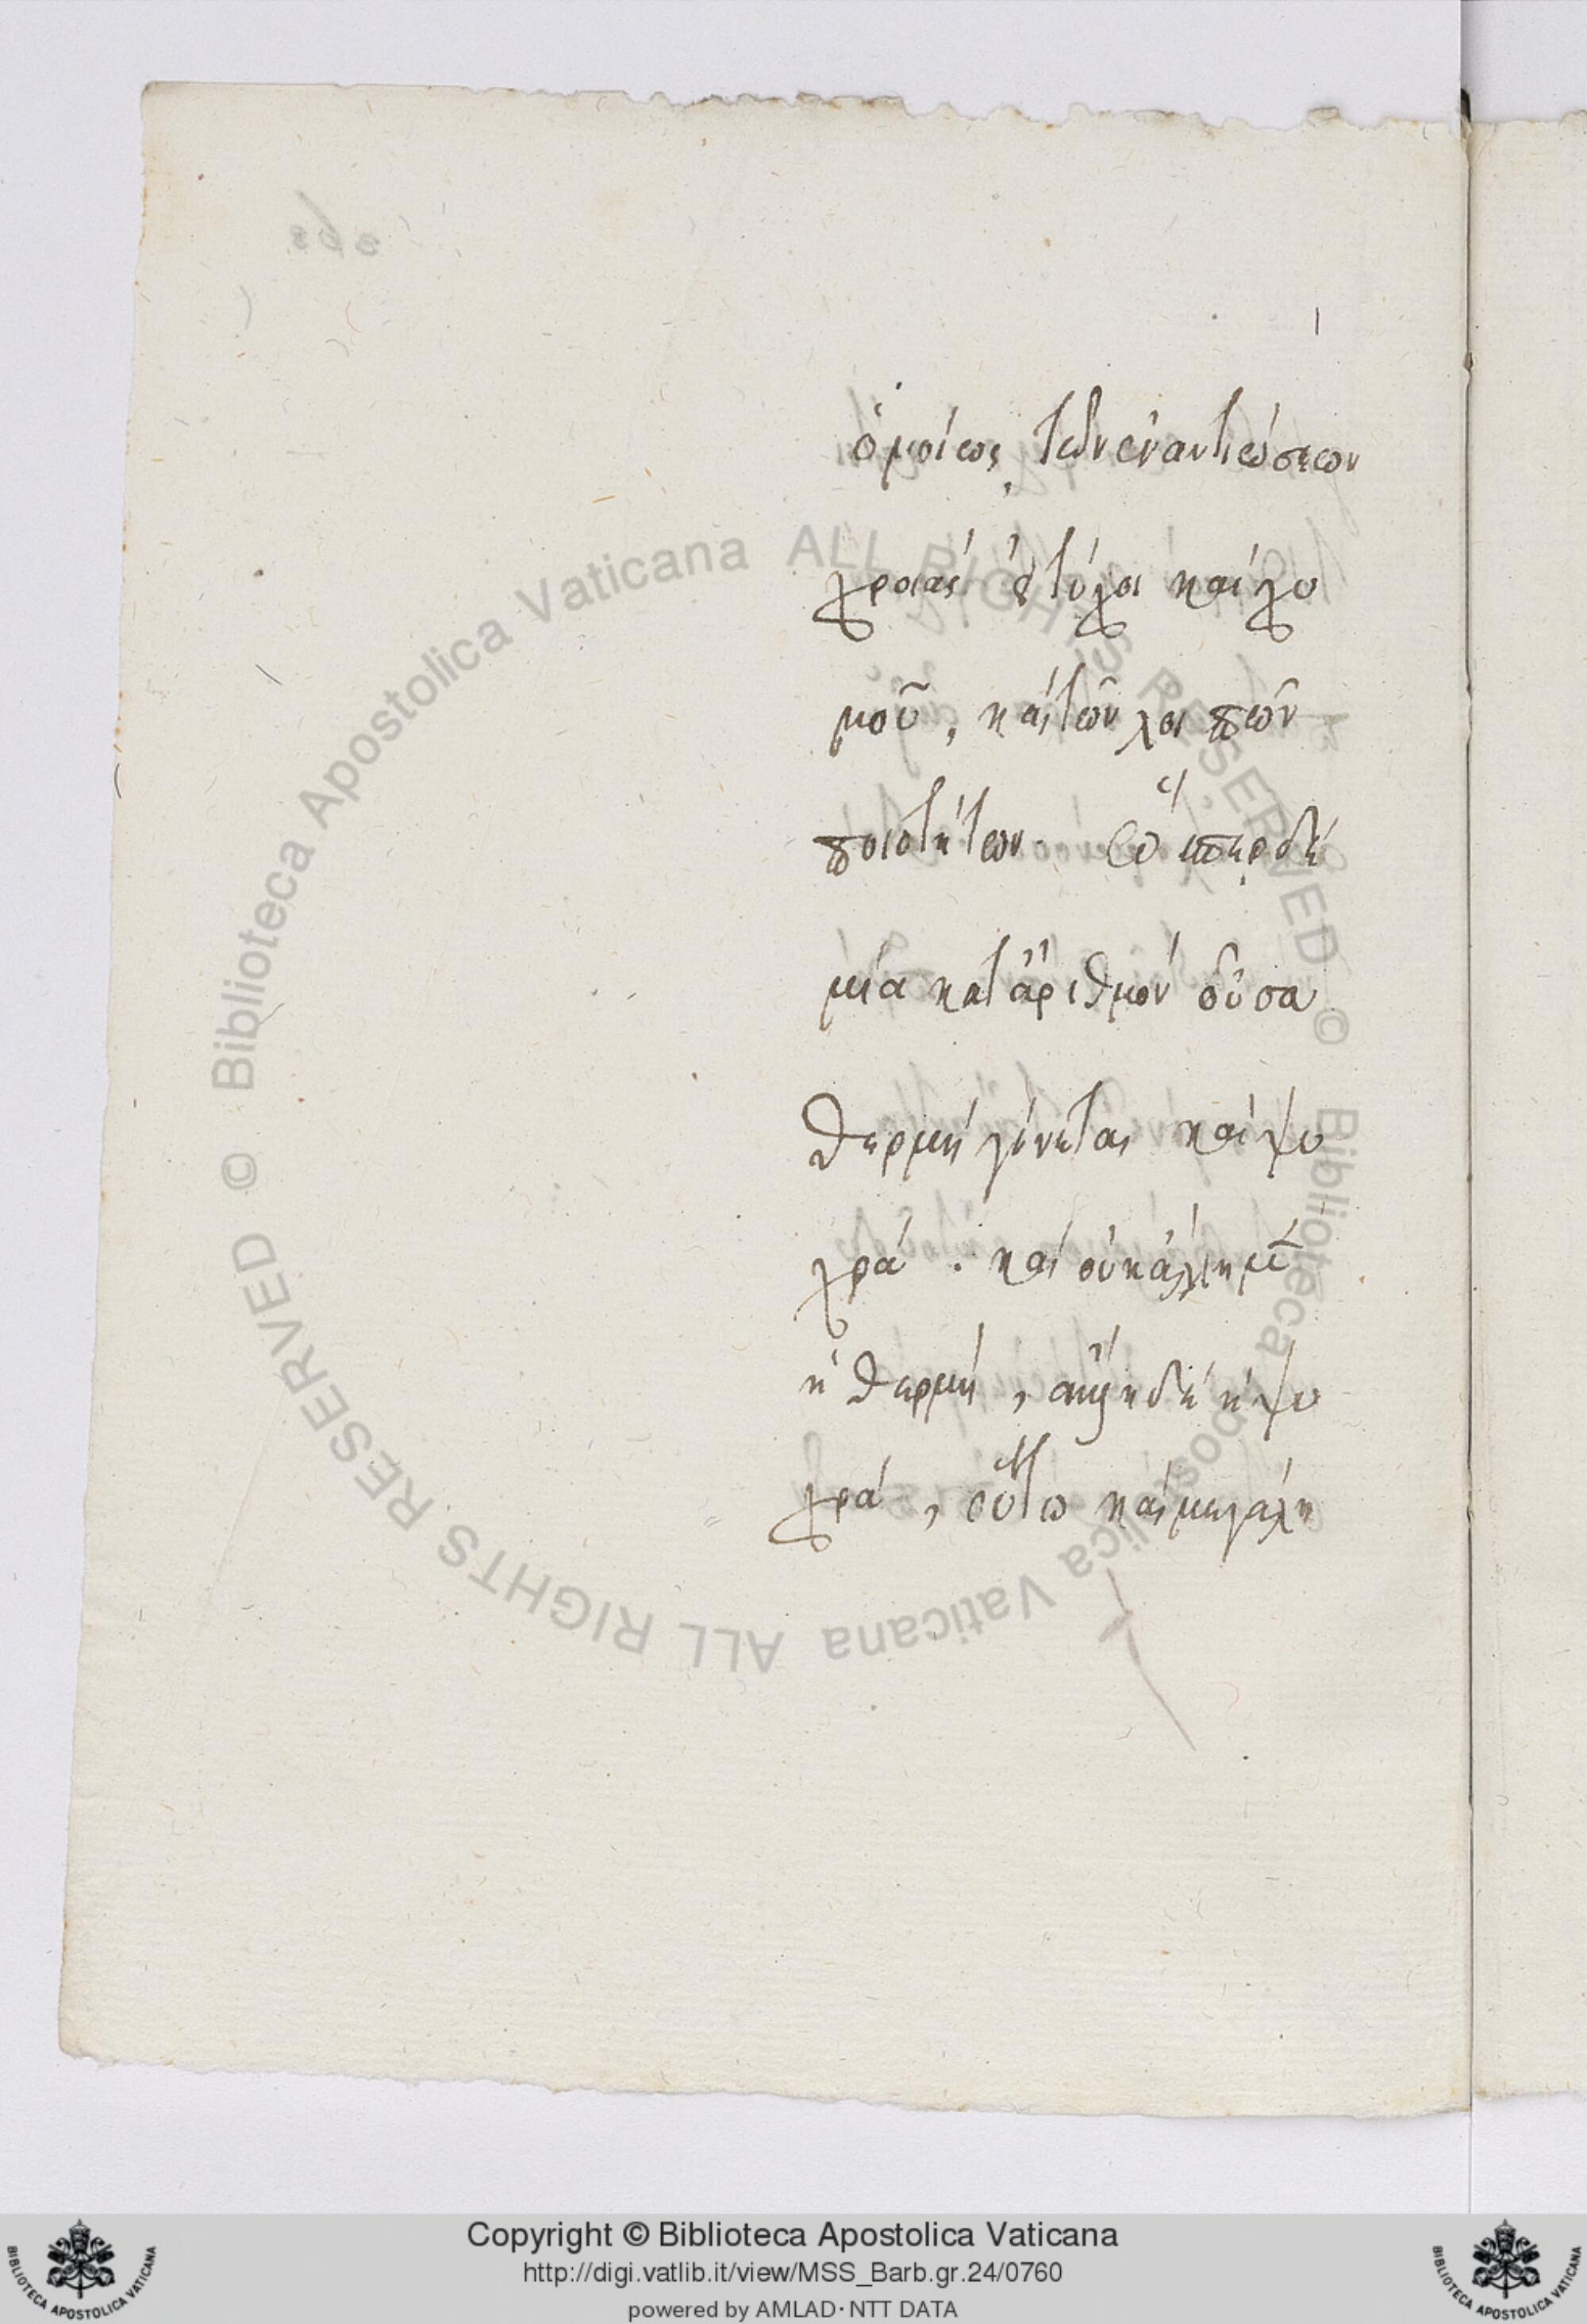 ὁμοίως τῶν ἐναντιώσεων
χροιᾶς εἰ τύχοι καὶ χυ
μοῦ, καὶ τῶν λοιπῶν
ποιοτήτων. ὥσπερ δὲ
μία κατ' ἀριθμὸν οὖσα
θερμὴ γίνεται καὶ ψυ
χρά. καὶ οὐκ ἄλλη μὲν
ἡ θερμή, ἄλλη δὲ ἡ ψυ
χρά, οὕτω καὶ μεγάλη
© Biblioteca Apostolica Vaticana ALL RIGHTS RESERVED
© Biblioteca Apostolica Vaticana ALL RIGHTS RESERVED
Copyright © Biblioteca Apostolica Vaticana
http://digi.vatlib.it/view/MSS_Barb.gr.24/0760
powered by AMLAD·NTT DATA
BIBLIOTECA APOSTOLICA VATICANA
BIBLIOTECA APOSTOLICA VATICANA